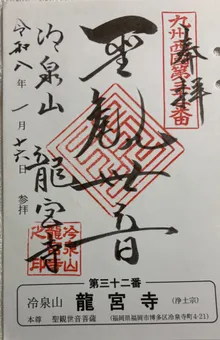 奉拝
九州西国第三十二番
聖観世音
冷泉山
龍宮寺
令和八年一月十六日参拝
冷泉山
龍宮寺
之印
第三十二番
冷泉山 龍宮寺 (浄土宗)
本尊 聖観世音菩薩 (福岡県福岡市博多区冷泉寺町4-21)